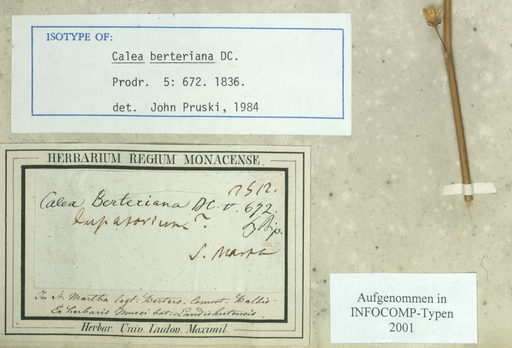 ISOTYPE OF:
Calea berteriana DC.
Prodr. 5: 672. 1836.
det. John Pruski, 1984
HERBARIUM REGIUM MONACENSE.
Calea Berteriana DC. V. 672.
Eupatorium?
S. Martha
In St. Martha legit: Bertero. Comment. Balbis
Ex herbario Musei bot: Landishutensis.
Herbar. Univ. Ludov. Maximil.
Aufgenommen in
INFOCOMP-Typen
2001